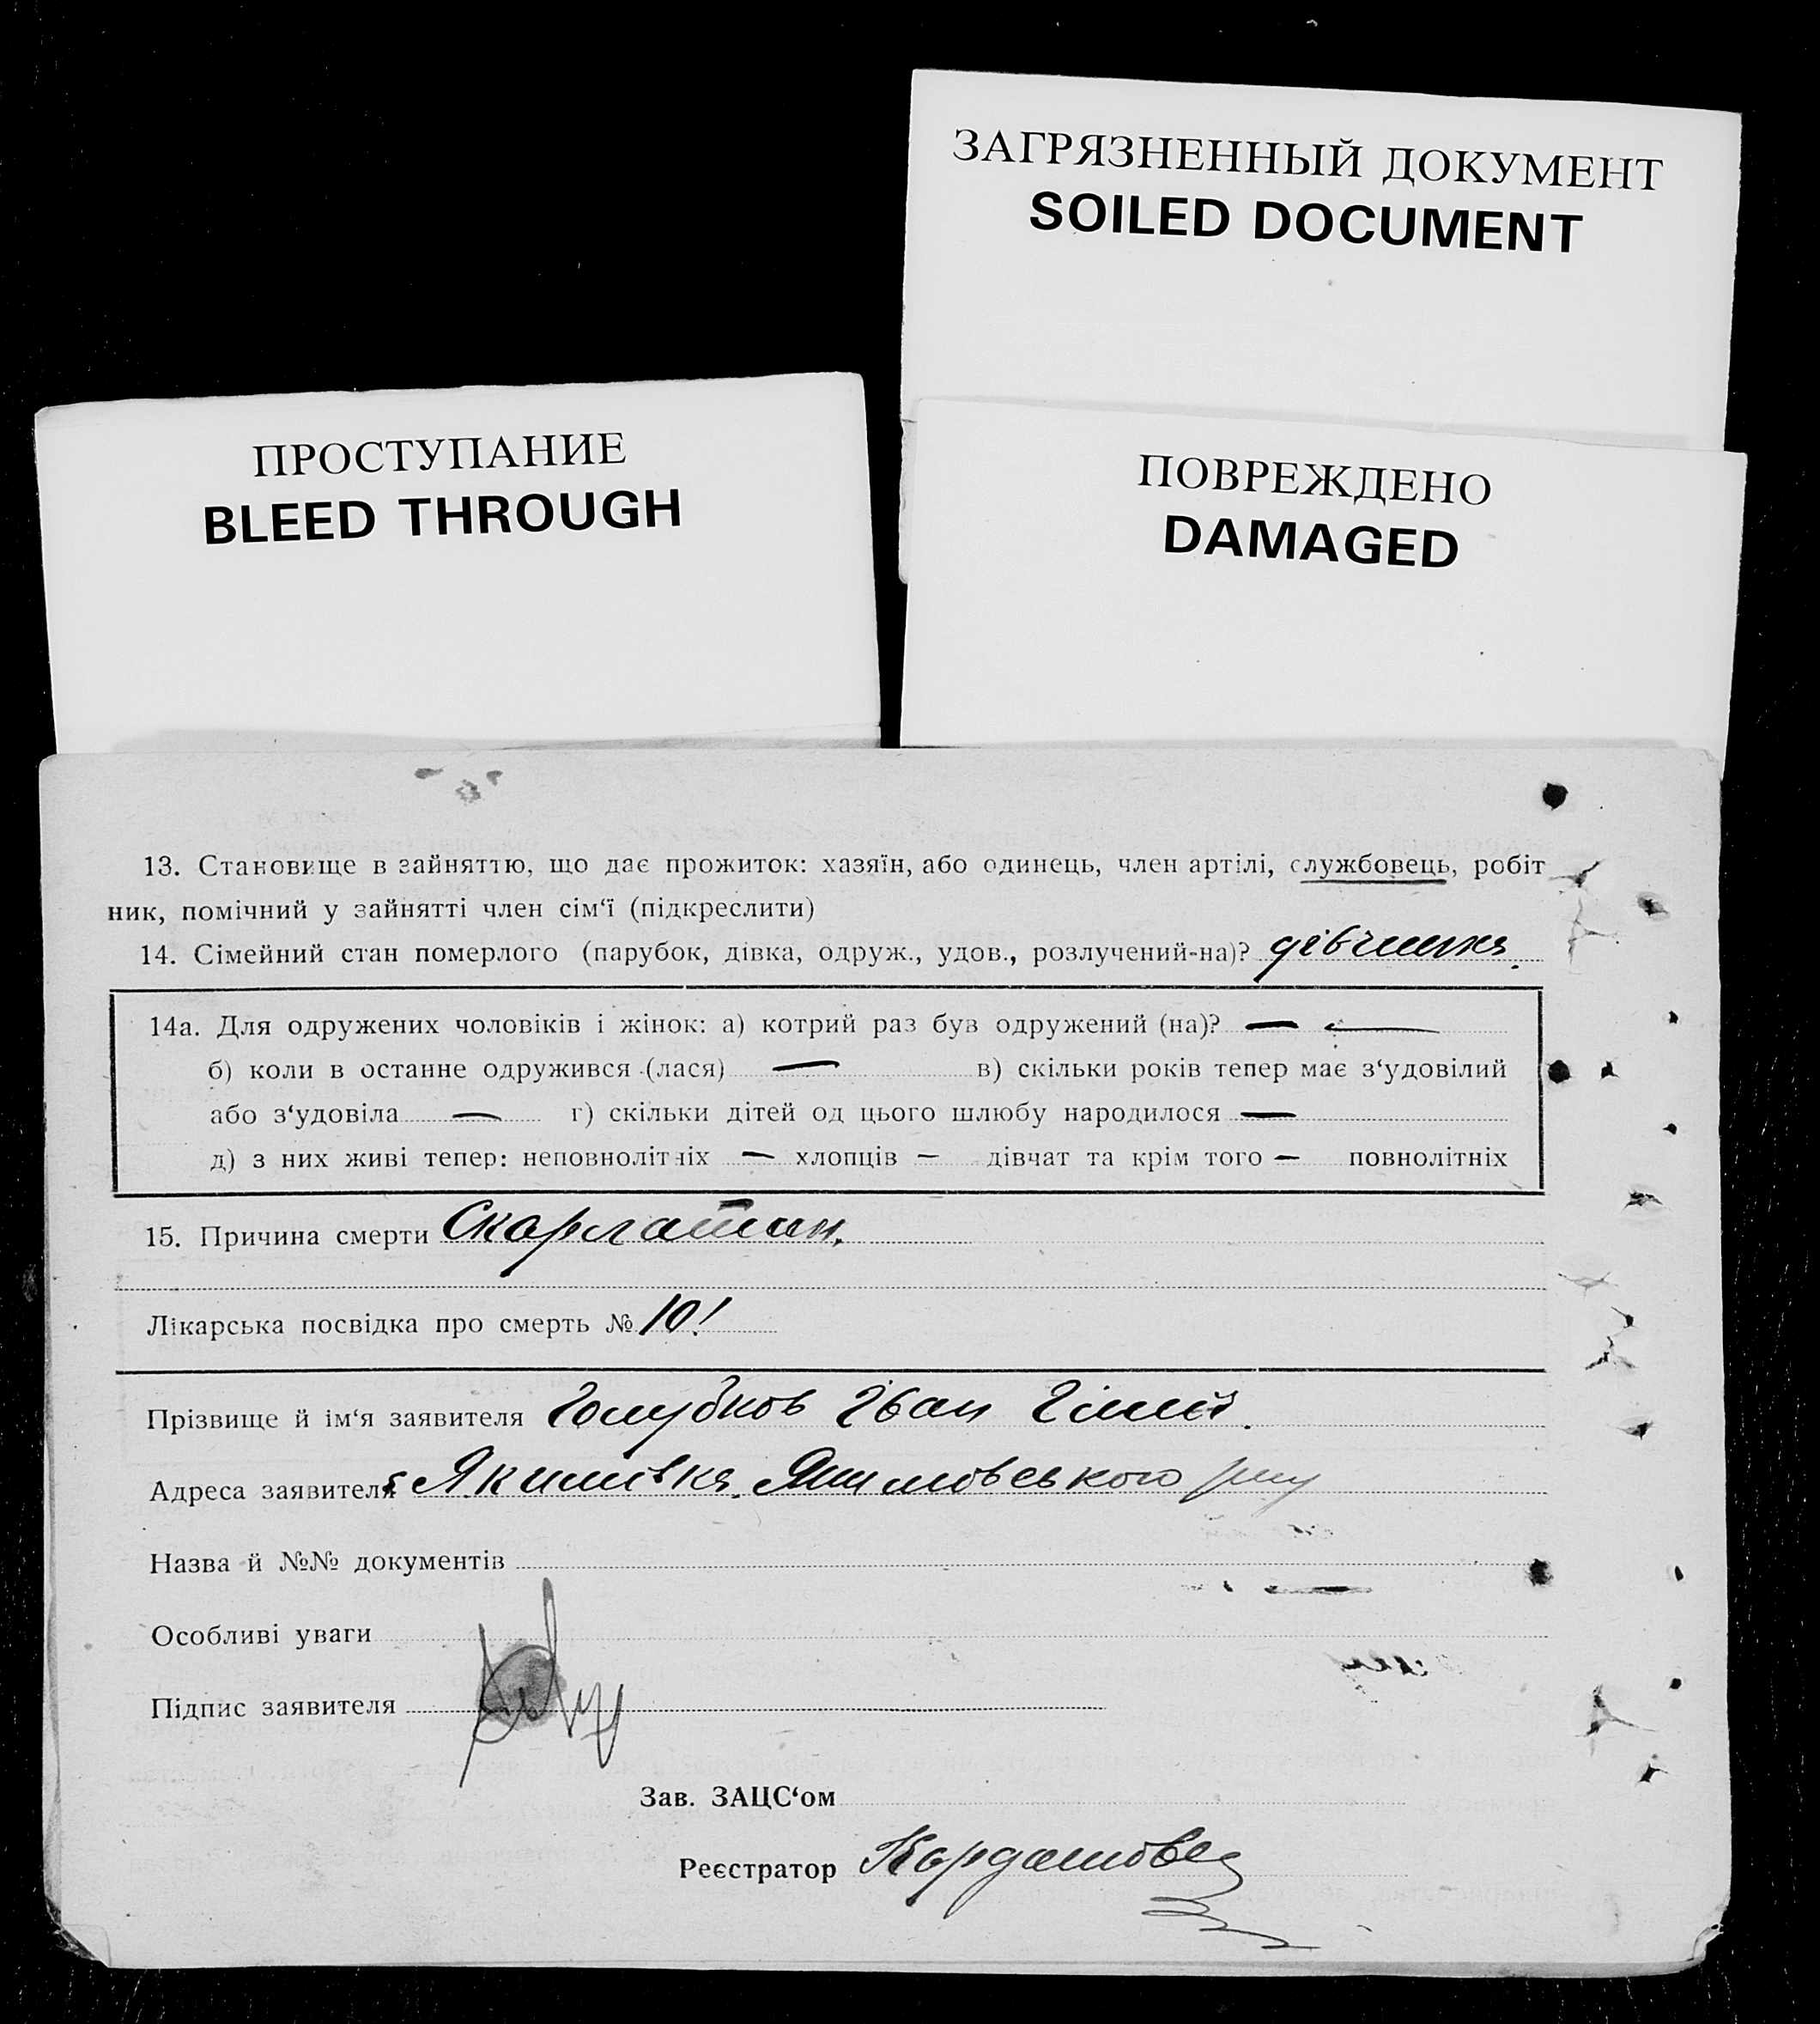 ЗАГРЯЗНЕННЫЙ ДОКУМЕНТ
SOILED DOCUMENT
ПРОСТУПАНИЕ
BLEED THROUGH
ПОВРЕЖДЕНО
DAMAGED
13. Становище в зайняттю, що дає прожиток: хазяїн, або одинець, член артілі, службовець, робіт
ник, помічний у зайнятті член сім‘ї (підкреслити)
14. Сімейний стан померлого (парубок, дівка, одруж., удов., розлучений-на)? дівчинка.
14а. Для одружених чоловіків і жінок: а) котрий раз був одружений (на)? — —
б) коли в останне одружився (лася) — в) скільки років тепер має з‘удовілий
або з‘удовіла — г) скільки дітей од цього шлюбу народилося —
д) з них живі тепер: неповнолітніх — хлопців — дівчат та крім того — повнолітніх
15. Причина смерти Скарлатин.
Лікарська посвідка про смерть № 101
Прізвище й ім‘я заявителя Голубков Іван
Адреса заявителя с Якимівка Якимовського р-ну
Назва й №№ документів
Особливі уваги
Підпис заявителя
Зав. ЗАЦС‘ом
Реєстратор